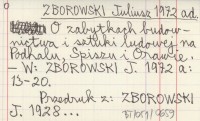 ZBOROWSKI Juliusz 1972 ad.
O zabytkach budow-
nictwa i sztuki ludowej na
Podhalu, Spiszu i Orawie.
– W: ZBOROWSKI J. 1972 a:
13-20.
Przedruk z: ZBOROWSKI
J. 1928...